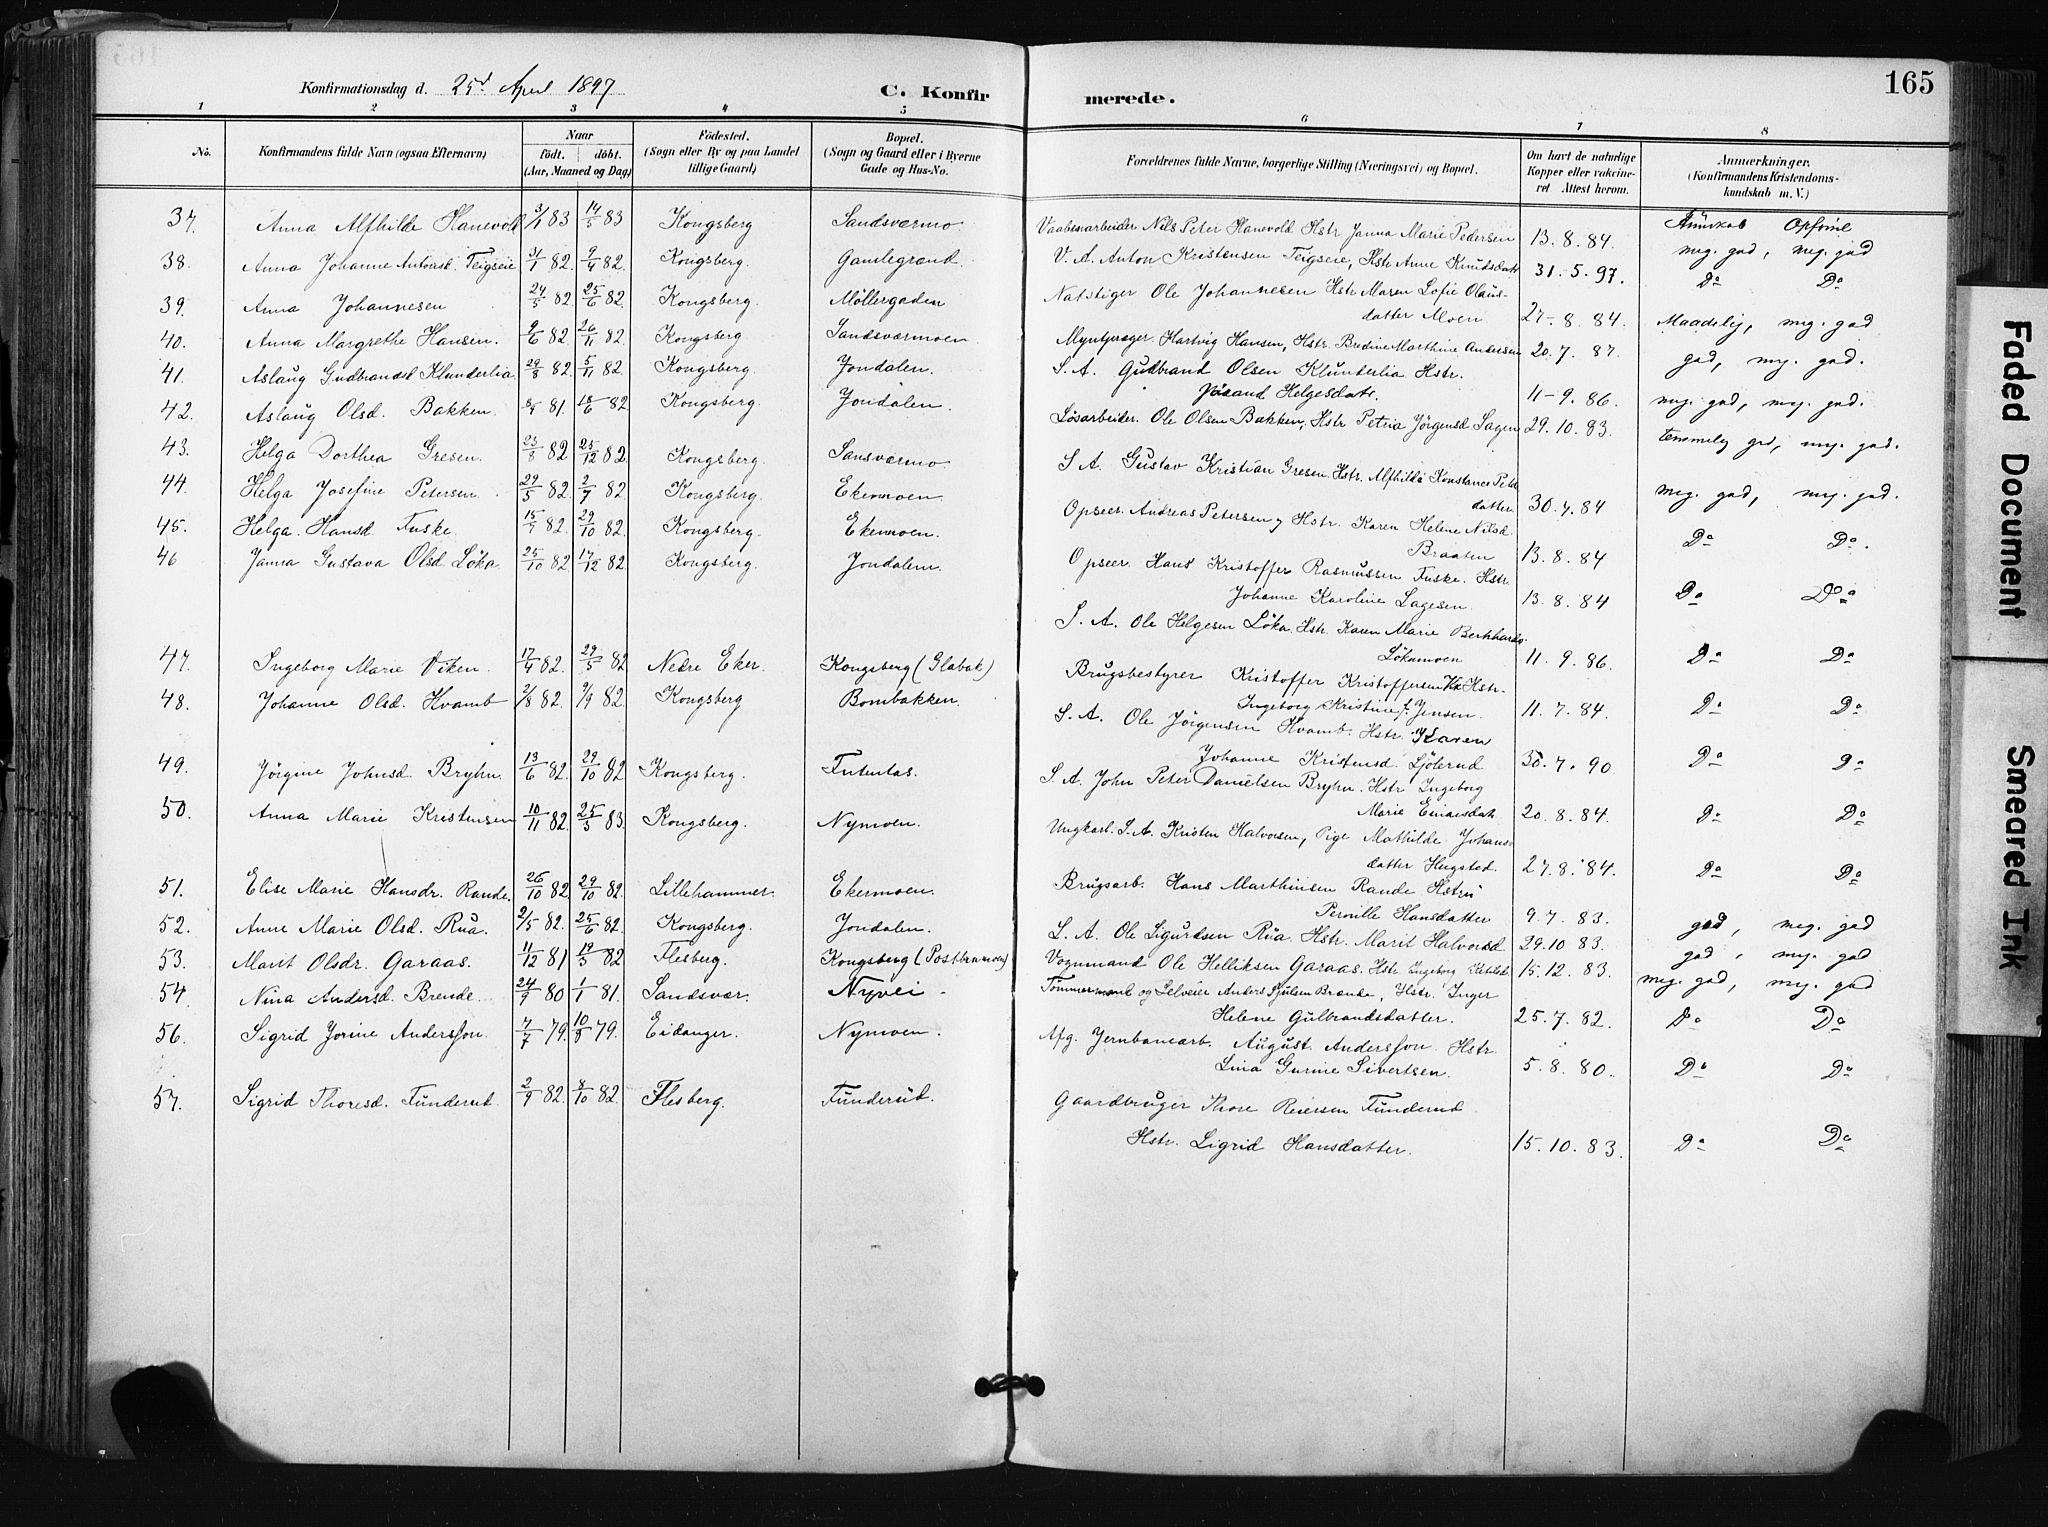 165
Konfirmationsdag d. 25d April 1897 C. Konfirmerede.
1 2 3 4 5 6 7 8
No. Konfirmandens fulde Navn (ogsaa Efternavn) Naar födt. döbt. (Aar, Maaned og Dag) Födested. (Sogn eller By og paa Landet tillige Gaard) Bopæl. (Sogn og Gaard eller i Byerne Gade og Hus-No. Forældrenes fulde Navne, borgerlige Stilling (Næringsvei) og Bopæl. Om havt de naturlige Kopper eller vakcineret Attest herom. Anmærkninger. (Konfirmandens Kristendomskundskab m. V.)
37. Anna Alfhilde Hanevold 3/1 83 14/5 83 Kongsberg Sandsværmo Vaabenarbeider Nils Peter Hanevold Hstr Janna Marie Pedersen 13.8.84. Kundskab Opførsel meg. god, meg. god
38. Anna Johanne Antonsd. Teigseie 3/1 82. 9/4 82. Kongsberg. Gamlegrand. V. A. Anton Kristensen Teigseie, Hstr Anne Knudsdatr 31-5.97. Do Do
39. Anna Johannesen 24/5 82 25/6 82. Kongsberg. Möllergaden Natstiger Ole Johannesen Hstr Maren Sofie Olaus-
datter Moen. 27-8.84. Maadelig, meg. god
40. Anna Margrethe Hansen. 9/6 82 26/11 82. Kongsberg. Sandsværmoen Myntpræger. Hartvig Hansen, Hstr. Bredine Marthine Andersen 20.7.87. god, meg. god.
41. Aslaug Gudbrandsd Klunderlia 29/8 82. 5/11 82 Kongsberg. Jondalen. S. A. Gudbrand Olsen Klunderlia Hstr.
Jøsand Helgesdatr. 11-9.86. meg. god, meg. god.
42. Aslaug Olsd. Bakken. 81. 18/6 82 Kongsberg. Jondalen. Løsarbeider. Ole Olsen Bakken, Hstr Petria Jörgensd Sagen 29.10.83. temmelig god, meg. god.
43. Helga Dorthea Gresen. 82 25/12 82. Kongsberg. Sansværmo. S A. Gustav Kristian Gresen. Hstr. Alfhilda Konstance Peter
datter. 30.4.84 meg. god, meg. god.
44. Helga Josefine Petersen 29/5 82. 2/7 82 Kongsberg. Ekermoen Opseer. Andreas Petersen, Hstr. Karen Helene Nilsd.
Braaten 13.8.84 Do Do.
45. Helga. Hansd Fuske. 82. 29/10 82. Kongsberg. Ekermoen. Opseer. Hans Kristoffer Rasmussen Fuske. Hstr.
Johanne Karoline Lagesen. 13.8.84 Do Do
46 Janna Gustava Olsd. Löka 25/10 82 17/12 82. Kongsberg. Jondalem. S. A. Ole Helgesen Löka. Hstr. Karen Marie Bernhards.
Løkamoen 11.9.86. Do Do
47. Ingeborg Marie Viken. 17/4 82. 29/5 82 Nedre Eker. Kongsberg (Glabak) Brugsbestyrer Kristoffer Kristoffersen Hstr.
Ingeborg Kristine f. Jensen. 11.7.84. Do Do
48. Johanne Olsd. Hvamb 2/8 82. 9/9 82 Kongsberg Bombakken. S. A. Ole Jörgensen Hvamb. Hstr. Karen
Johanne Kristensd. Sjölerud 30.7.90 Do Do
49. Jörgine Johnsd. Bryhn. 13/6 82. 29/10 82 Kongsberg. Futentas. S. A. John Peter Danielsen Bryhn. Hstr Ingeborg
Marie Einarsdatr 20.8.84. Do Do
50. Anna Marie Kristensen 10/11 82. 25/3 83. Kongsberg. Nymoen. Ungkarl. S. A. Kristen Halvorsen, Pige Mathilde Johans-
datter Hengsted. 27.8.84. Do Do
51. Elise Marie Hansdr. Rande. 26/10 82 29/10 82. Lillehammer. Ekermoen. Brugsarb. Hans Marthinsen Rande Hstru
Pernille Hansdatter 9.7.83. god, meg. god
52. Anne Marie Olsd. Rua. 2/5 82. 25/6 82. Kongsberg. Jondalen. S. A. Ole Sigurdsen Rua. Hstr. Marit Halvorsd 29.10 83. god, meg. god
53. Marit Olsdr. Garaas. 11/12 81 19/3 82 Flesberg. Kongsberg (Postbramoen) Vognmand Ole Helliksen Garaas. Hstr Ingeborg Ketilsdr 15.12.83. meg. god, meg. god
54. Nina Andersd. Brende. 24/9 80 1/1 81. Sandsvær. Nyvei Tømmermand og Selveier Anders Sjulsen Brænde, Hstr. Inger
Helene Gulbrandsdatter. 25.7.82. Do Do
56. Sigrid Jorine Anderssøn. 7/7 79. 10/8 79. Eidanger. Nymoen. Afg. Jernbanearb. August Anderssøn. Hstr
Lina Gurine Sivertsen. 5.8.80. Do Do
57. Sigrid Thoresd. Funderud. 2/9 82. 8/10 82. Flesberg. Funderud. Gaardbruger Thore Reiersen Funderud
Hstr. Sigrid Hansdatter. 15.10.83. Do Do
Faded Document
Smeared Ink